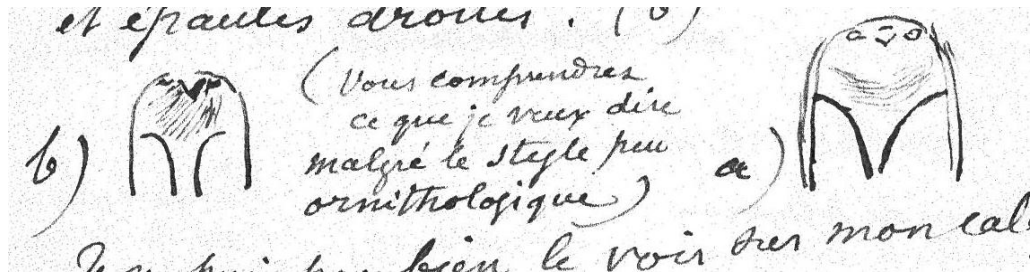 et épaules droites. (b)
(Vous comprendrez
ce que je veux dire
malgré le style peu
ornithologique)
b)
a)
bien le voir sur mon